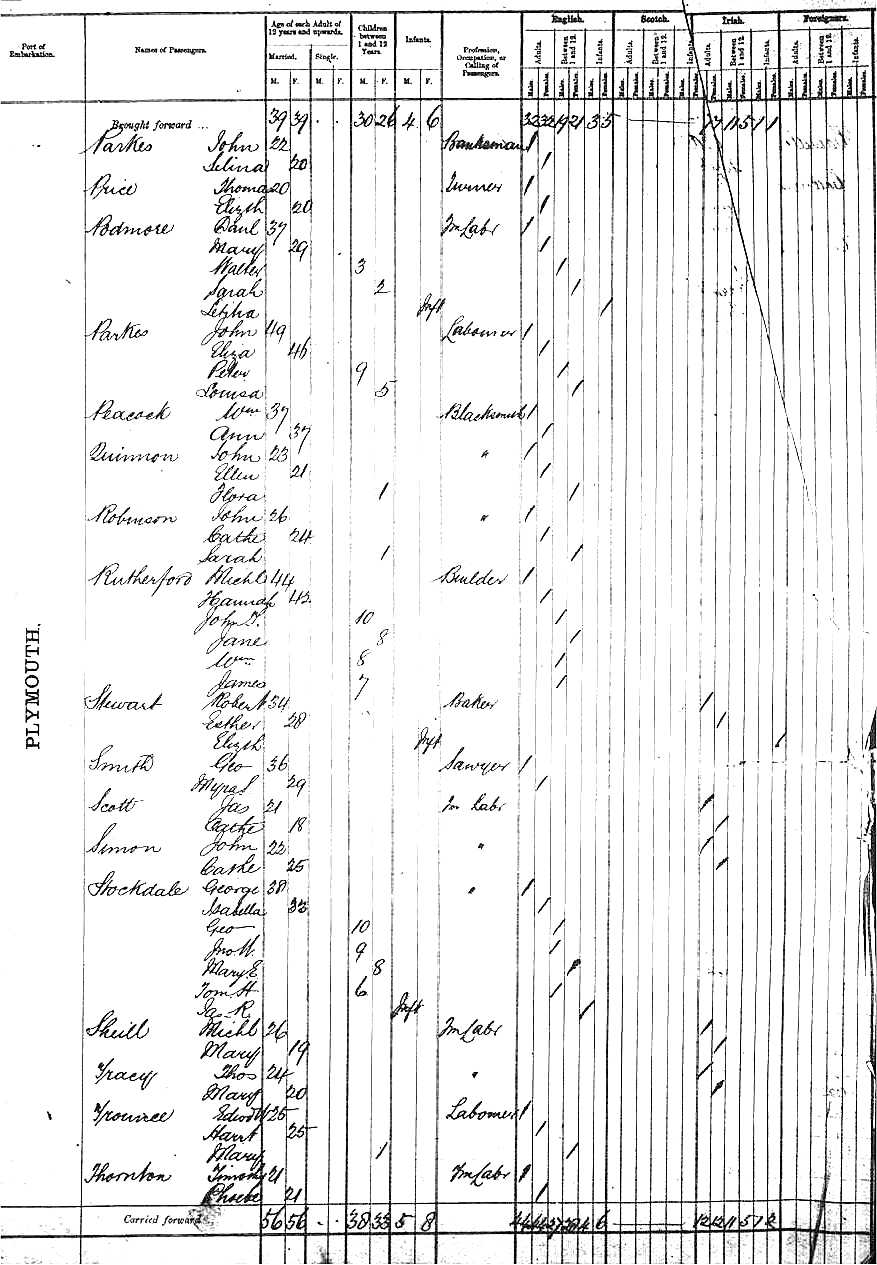 Port of Embarkation. Names of Passengers. Age of each Adult of 12 years and upwards. Children between 1 and 12 Years. Infants. Profession, Occupation, or Calling of Passengers. English. Scotch. Irish. Foreigners.
Married. Single. Adults. Between 1 and 12. Infants. Adults. Between 1 and 12. Infants. Adults. Between 1 and 12. Infants. Adults. Between 1 and 12. Infants.
M. F. M. F. M. F. M. F. Males. Females. Males. Females. Males. Females. Males. Females. Males. Females. Males. Females. Males. Females. Males. Females. Males. Females. Males. Females. Males. Females. Males. Females.
Brought forward ... 39 39 30 26 4 6 32 32 19 21 3 5
Parkes John 22 Banksman 1
Selina 20 1
Price Thomas 20 Turner 1
Elizth 20 1
Podmore Danl 37 Fm Labr 1
Mary 29 1
Walter 3 1
Sarah 2 1
Letitia Inft 1
Parkes John 49 Labourer 1
Eliza 46 1
Peter 9 1
Louisa 5 1
Peacock Wm 37 Blacksmith 1
Ann 37 1
Quinnon John 23 " 1
Ellen 21 1
Flora 1 1
Robinson John 26 " 1
Cathe 24 1
Sarah 1 1
Rutherford Michl 44 Builder 1
Hannah 42 1
John T. 10 1
Jane 8 1
Wm 8 1
James 7 1
Stewart Robert 34 Baker 1
Esther 28 1
Elizth Inft 1
Smith Geo 36 Sawyer 1
29 1
Scott Jas 21 Fm Labr 1
Cathe 18 1
Simon John 22 " 1
Cathe 25 1
Stockdale George 38 " 1
Isabella 33 1
Geo 10 1
Jno W. 9 1
Mary E 8 1
Tom H 6 1
Jas R. Inft 1
Sheill Michl 26 Fm Labr 1
Mary 19 1
Tracy Thos 24 " 1
Mary 20 1
Trounce Edwd 25 Labourer 1
Harrt 25 1
Mary 1 1
Thornton Timothy 21 Fm Labr 1
Phoebe 21 1
Carried forward 56 56 38 33 5 8 44 44 27 28 4 6 12 12 11 5 1 2
PLYMOUTH.